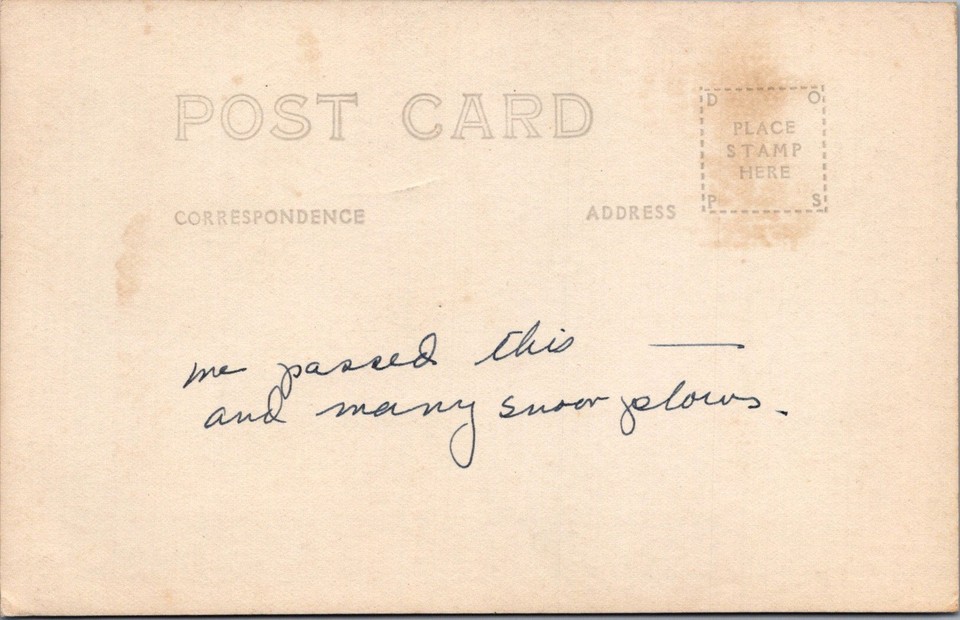 POST CARD
D O
PLACE
STAMP
HERE
P S
CORRESPONDENCE
ADDRESS
we passed this —
and many snow plows.